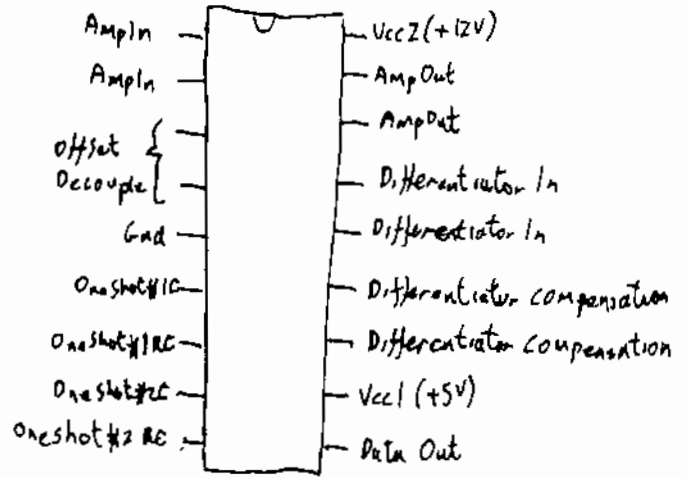 AmpIn
AmpIn
Offset
Decouple
Gnd
Oneshot#1C
Oneshot#1RC
Oneshot#2C
Oneshot#2 RC
Vcc2(+12V)
AmpOut
AmpOut
Differentiator In
Differentiator In
Differentiator compensation
Differentiator compensation
Vcc1 (+5V)
Data Out